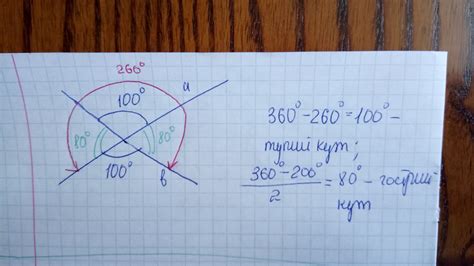 260°
a
100°
80°
80°
100°
b
360°-260°=100°-
тупий кут;
360°-200°
2
= 80°- гострий
кут